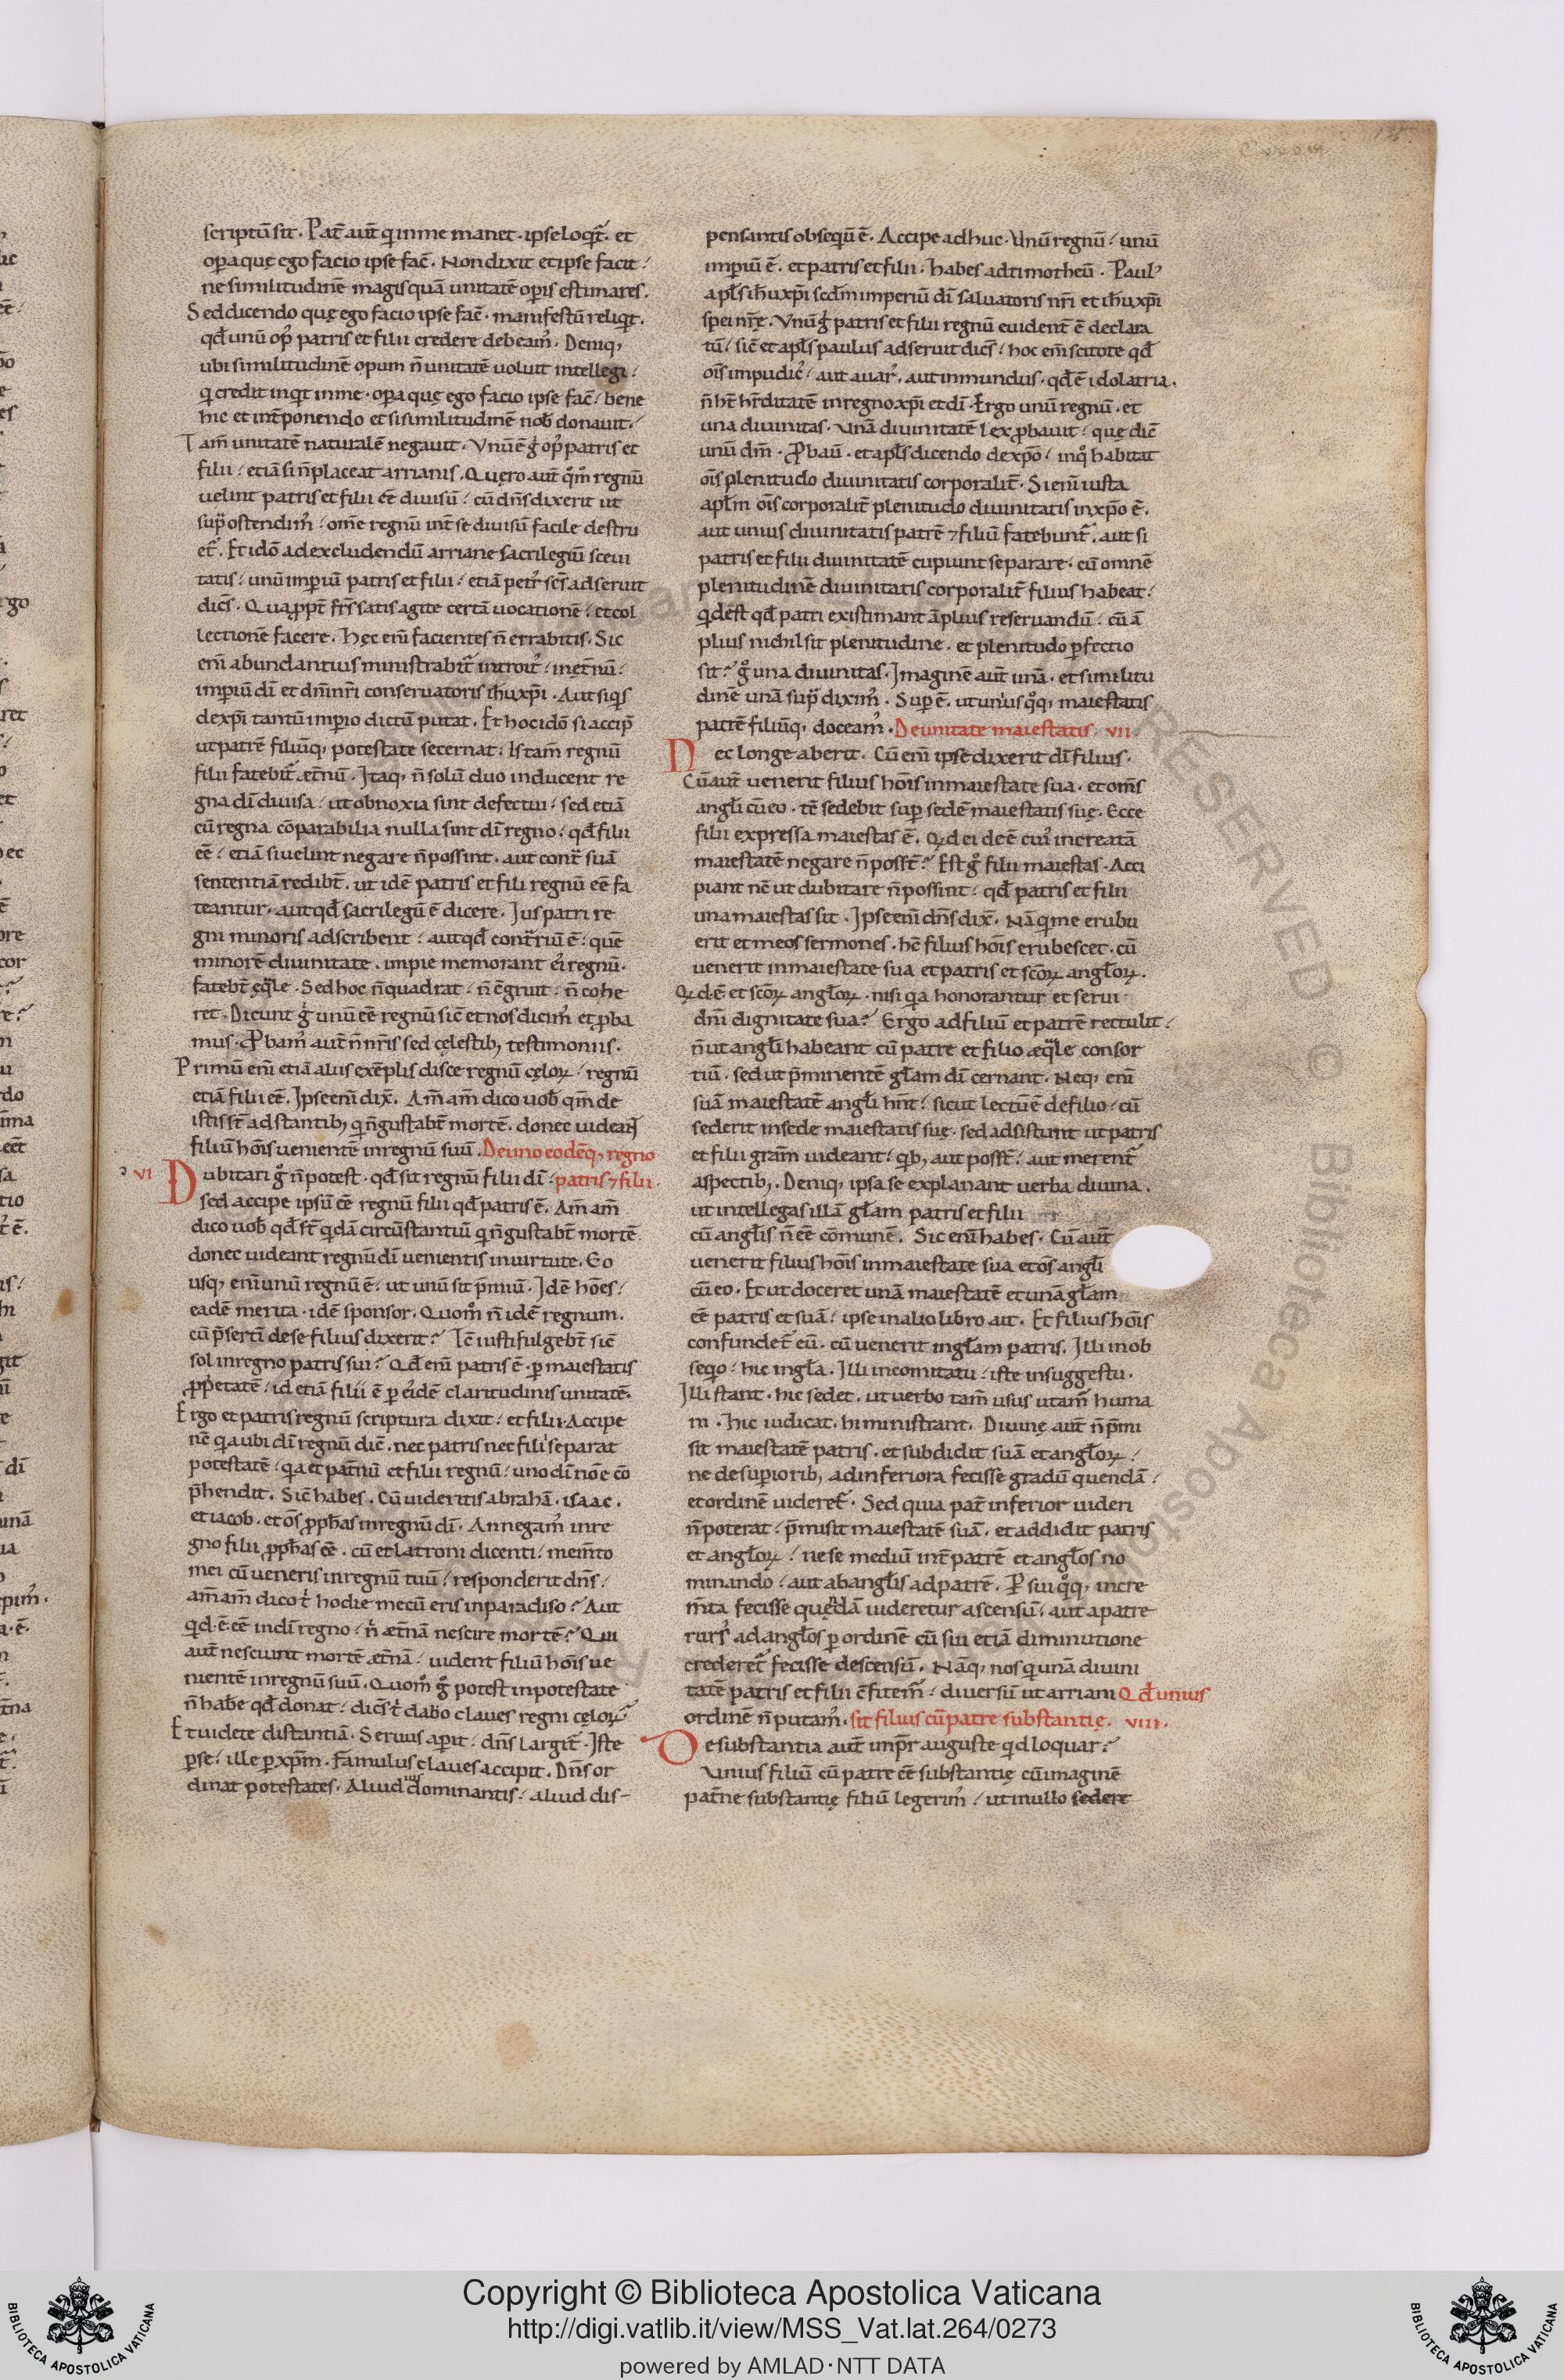 scriptū sit. Pat̄ aut̄ q inme manet. ipse loqt̄. et
opa quę ego facio ipse fac̄. Non dixit et ipse facit.
ne similitudinē magis quā unitatē opis estimares.
Sed dicendo quę ego facio ipse fac̄. manifestū reliqt.
qđ unū op' patris et filii credere debeam'. Deniq;
ubi similitudinē opum n̄ unitatē uoluit intellegi.
q credit inqt inme. opa quę ego facio ipse fac̄. bene
hic et int̄ponendo et si similitudinē nob̄ donauit.
Tam̄ unitatē naturalē negauit. Unū ē g̊ op' patris et
filii. etiā si n̄ placeat arrianis. Quęro aut̄ qm̊ regnū
uelint patris et filii eē diuisū. cū dn̄s dixerit ut
sup̄ ostendim'. om̄e regnū int̄ se diuisū facile destru
et̄. Et idō ad excludendū arriane sacrilegiū sceui
tatis. unū imperiū patris et filii. etiā petr' sc̄s adseruit
dic̄s. Quappt̄ fr̄s satis agite certā uocationē. et col
lectionē facere. Hęc eni facientes n̄ errabitis. Sic
eni abundantius ministrabit̄ introit'. inęt̄nū.
imperiū dī et dn̄i nr̄i conseruatoris ih̄u xp̄i. Aut siqs
de xp̄i tantū imperio dictū putat. Et hoc idō si accip
ut patrē filiūq; potestate secernat. Is tam̄ regnū
filii fatebit̄ æt̄nū. Itaq; n̄ solū duo inducent re
gna dī diuisa. ut obnoxia sint defectui. sed etiā
cū regna cōparabilia nulla sint dī regno. qđ filii
eē. etiā si uelint negare n̄ possint. aut cont̄ suā
sententiā redibt̄. ut idē patris et fili regnū eē fa
teantur. aut qđ sacrilegiū ē dicere. Ius patri re
gni minoris adscribent. aut qđ cont̄riū ē. quē
minorē diuinitate. impie memorant ei' regnū.
fatebt̄ ęqle. Sed hoc n̄ quadrat. n̄ ēgruit. n̄ cohe
ret. Dicunt g̊ unū eē regnū sic̄ et nos dicim' et pba
mus. Pbam' aut̄ n̄ nr̄is sed cęlestib; testimoniis.
Primū eni etiā aliis exēplis disce regnū cęloꝝ. regnū
etiā filii eē. Ipse eni dix̄. Am̄ am̄ dico uob̄ qm̄ de
istis st̄ adstantib; q n̄ gustabt̄ mortē. donec uideant
filiū hōis uenientē in regnū suū. De uno eodēq; regno
VI Dubitari g̊ n̄ potest. qđ sit regnū filii dī. patris ⁊ filii.
sed accipe ipsū eē regnū filii qđ patris ē. Am̄ am̄
dico uob̄ qđ st̄ qdā circūstantiū q n̄ gustabt̄ mortē.
donec uideant regnū dī uenientis in uirtute. Eo
usq; eni unū regnū ē. ut unū sit p̄miū. Idē hōes.
eadē merita. idē sponsor. Quom̊ n̄ idē regnum.
cū p̄sertī de se filius dixerit? Tc̄ iusti fulgebt̄ sic̄
sol in regno patris sui? Qđ eni patris ē. p maiestatis
ppetatē. id etiā filii ē p ei'dē claritudinis unitatē.
Ergo et patris regnū scriptura dixit. et filii. Accipe
nē qa ubi dī regnū dic̄. nec patris nec filii separat
potestatē. qa et pat̄nū et filii regnū. uno dī noīe cō
p̄hendit. Sic̄ habes. Cū uideritis abrahā. isaac.
et iacob. et os̄ pph̄as in regnū dī. An negam' in re
gno filii pph̄as eē. cū et latroni dicenti. mem̄to
mei cū ueneris in regnū tuū. responderit dn̄s.
am̄ am̄ dico t̄ hodie mecū eris in paradiso? Aut
qd ē eē in dī regno. n̄ æt̄nā nescire mortē? Qui
aut̄ nesciunt mortē æt̄nā. uident filiū hōis ue
nientē in regnū suū. Quom̊ g̊ potest in potestate
n̄ habe qđ donat. dic̄s t̄ dabo claues regni cęloꝝ?
Et uidete distantiā. Seruus apit. dn̄s largit̄. Iste
p se. ille p xp̄m. Famulus claues accipit. Dn̄s or
dinat potestates. Aliud ius dominantis. aliud dis-
pensantis obseqū ē. Accipe adhuc. Unū regnū. unū
imperiū ē. et patris et filii. habes ad timotheū. Paul'
apl̄s ih̄u xp̄i scdm̄ imperiū dī saluatoris nr̄i et ih̄u xp̄i
spei nr̄ę. Unū g̊ patris et filii regnū euident̄ ē declara
tū. sic̄ et apl̄s paulus adseruit dic̄s. hoc eni scitote qđ
ois̄ impudic'. aut auar'. aut inmundus. qđ ē idolatria.
n̄ ht̄ hr̄ditatē in regno xp̄i et dī. Ergo unū regnū. et
una diuinitas. Unā diuinitatē lex pbauit. quę dic̄
unū dm̄. Pbau. et apl̄s dicendo de xp̄o. in q' habitat
ois̄ plenitudo diuinitatis corporalit̄. Si eni iusta
apl̄m ois̄ corporalit̄ plenitudo diuinitatis in xp̄o ē.
aut unius diuinitatis patrē ⁊ filiū fatebunt̄. aut si
patris et filii diuinitatē cupiunt separare. cū omnē
plenitudinē diuinitatis corporalit̄ filius habeat.
qd ēst qđ patri existimant āplius reseruandū. cū ā
plius nichil sit plenitudine. et plenitudo pfectio
sit? g̊ una diuinitas. Imaginē aut̄ unā. et similitu
dinē unā sup̄ dixim'. Sup ē. ut uni'us q'q; maiestatis
patrē filiūq; doceam'. De unitate maiestatis. VII.
Nec longe aberit. Cū eni ipse dixerit dī filius.
Cū aut̄ uenerit filius hōis in maiestate sua. et oms̄
angl̄i cū eo. tc̄ sedebit sup sedē maiestatis suę. Ecce
filii expressa maiestas ē. Qd ei deē cui' increatā
maiestatē negare n̄ posst̄? Est g̊ filii maiestas. Acci
piant nē ut dubitare n̄ possint. qđ patris et filii
una maiestas sit. Ipse eni dn̄s dix̄. Nā q me erubu
erit et meos sermones. hc̄ filius hōis erubescet. cū
uenerit in maiestate sua et patris et sc̄oꝝ angl̄oꝝ.
Qd. ē. et sc̄oꝝ angl̄oꝝ. nisi qa honorantur et serui
dni dignitate sua? Ergo ad filiū et patrē rettulit.
n̄ ut angl̄i habeant cū patre et filio æqle consor
tiū. sed ut p̄minentē gl̄am dī cernant. Neq; eni
suā maiestatē angl̄i hn̄t. sicut lectū ē de filio. cū
sederit in sede maiestatis suę. sed adsistunt ut patris
et filii gram̄ uideant. qb; aut posst̄. aut merent̄
aspectib;. Deniq; ipsa se explanant uerba diuina.
ut intellegas illā gl̄am patris et filii
cū angl̄is n̄ eē cōmunē. Sic eni habes. Cū aut̄
uenerit filius hōis in maiestate sua et os̄ angl̄i
cū eo. Et ut doceret unā maiestatē et unā gl̄am
eē patris et suā. ipse in alio libro ait. Et filius hōis
confundet̄ eū. cū uenerit in gl̄am patris. Illi in ob
seqo. hic in gl̄a. Illi in comitatu. iste in suggestu.
Illi stant. hic sedet. ut uerbo tam̄ usus utam' huma
ni. hic iudicat. hi ministrant. Diuine aut̄ n̄ p̄mi
sit maiestatē patris. et subdidit suā et angl̄oꝝ.
ne de superiorib; ad inferiora fecisse gradū quendā.
et ordinē uideret̄. Sed quia pat̄ inferior uideri
n̄ poterat. p̄misit maiestatē suā. et addidit patris
et angl̄oꝝ. ne se mediū int̄ patrē et angl̄os no
minando. aut ab angl̄is ad patrē. P sui q'q; incre
m̄ta fecisse quędā uideretur ascensū. aut a patre
rurs' ad angl̄os p ordinē cū sui etiā diminutione
crederet̄ fecisse descensū. Nāq; nos q unā diuini
tatē patris et filii c̄fitem̄. diuersū ut arriani Qđ unius
ordinē n̄ putam'. sit filius cū patre substantię. VIII.
De substantia aut̄ imp̄r auguste qd loquar?
Unius filiū cū patre eē substantię cū imaginē
pat̄nę substantię filiū legerim'. ut in ullo sedere
Copyright © Biblioteca Apostolica Vaticana
http://digi.vatlib.it/view/MSS_Vat.lat.264/0273
powered by AMLAD·NTT DATA
BIBLIOTECA APOSTOLICA VATICANA
BIBLIOTECA APOSTOLICA VATICANA